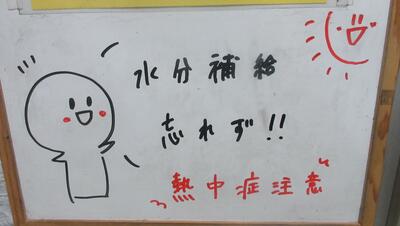 水分補給
忘れず!!
熱中症注意